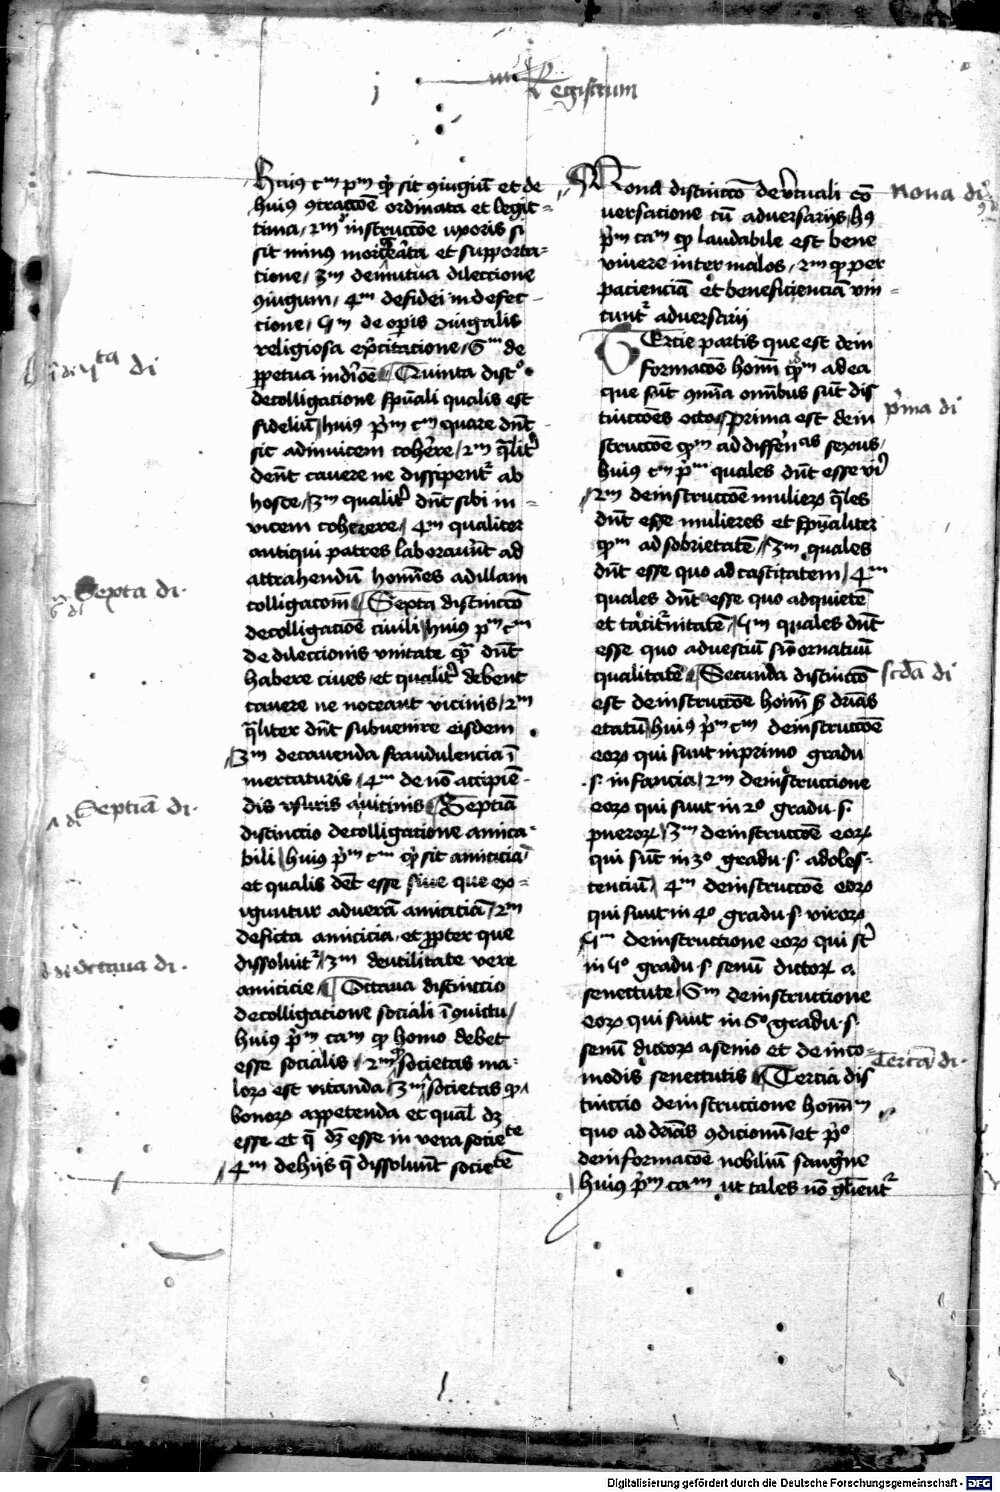 Registrum
Huius cm pm qp sit ꝯiugiū et de
huius ꝯtraccōe ordinata et legit-
tima / 2m instruccōe uxoris si
sit minus morigerata et supporta-
cione / 3m de mutua dileccione
ꝯiugum / 4m de fidei in defec-
cione / 5m de opis ꝯiugalis
religiosa exercitacione / 6m de
ꝑpetua
Quinta distō
de colligacione spūali qualis est
fideliū / huius pm cm quare dn̄t
sit adinuicem coherē / 2m qualit̄
den̄t cauere ne dissipent᷑ ab
hoste / 3m qualit̄ dn̄t sibi in-
vicem coherere / 4m qualiter
antiqui patres laborauūt ad
attrahendū homīes ad illam
colligacōm Sexta distinccō
de colligacōe ciuili / huius pm cm
de dileccionis vnitate qm dn̄t
habere ciues / et qualit̄ debent
cauere ne noceant vicinis / 2m
qualiter dn̄t subuenire eisdem
3m de cauenda fraudulencia ī
mercaturis / 4m de nō accipiē-
dis vsuris Septīa
distinccio de colligacione amica-
bili / huius pm cm qp sit amicicia
et qualis det̄ esse siue que ex-
iguntur ad verā amiciciā / 2m
de ficta amicicia / et ꝓpter que
dissoluit᷑ / 3m de vtilitate vere
amicicie Octaua distinccio
de colligacione sociali ī ꝯuictu /
huius pm cam qp homo debet
esse socialis / 2m societas ma-
lorꝝ est vitanda / 3m societas qp
bonorꝝ appetenda et qual dꝫ
esse et q̄ dꝫ esse in vera societate
4m de hijs q̄ dissoluūt societatē
Quīta di
Sexta di.
6 di
Septīa di.
Octaua di.
Nona distinccō de virtuali cō
uersatione cū aduersarijs / hꝰ
pm cam qp laudabile est bene
viuere inter malos / 2m qp per
pacienciā et beneficienciā vin-
cunt᷑ aduersarij
Tercie partis que est de in
formacōe homī qm ad ea
que sūt ꝯmīa omībus sūt dis
tincciōes octo / prima est de in
struccōe qm ad differencias sexus /
huius cm pm quales dn̄t esse viri
2m de instruccōe mulierꝝ q̄les
dn̄t esse mulieres et spūaliter
qm ad sobrietatē / 3m quales
dn̄t esse quo ad castitatem / 4m
quales dn̄t esse quo ad quietē
et taciturnitatē / 5m quales dn̄t
esse quo ad vestiū ornatuū
qualitatē Secunda distinccō
est de instruccōe homī
etatū / huius pm cm de instruccōe
eorꝝ qui sunt in primo gradu
.s. infancia / 2m de instruccione
eorꝝ qui sunt in 2o gradu .s.
puerorꝝ / 3m de instruccōe eorꝝ
qui sūt in 3o gradu .s. adoles-
centiū / 4m de instruccōe eorꝝ
qui sunt in 4o gradu .s. virorꝝ
5m de instruccione eorꝝ qui st̄
in 5o gradu .s. senū dictorꝝ a
senectute / 6m de instruccione
eorꝝ qui sunt in 6o gradu .s.
senū dictorꝝ a senio et de inco-
modis senectutis Tercia dis
tinccio de instruccione homī
quo ad ꝯdicionū / et po
de informacōe nobiliū sangᵢne
huius pm cam ut tales nō glient᷑
Nona di
prima di
scda di
Tercia di.
Digitalisierung gefördert durch die Deutsche Forschungsgemeinschaft - DFG